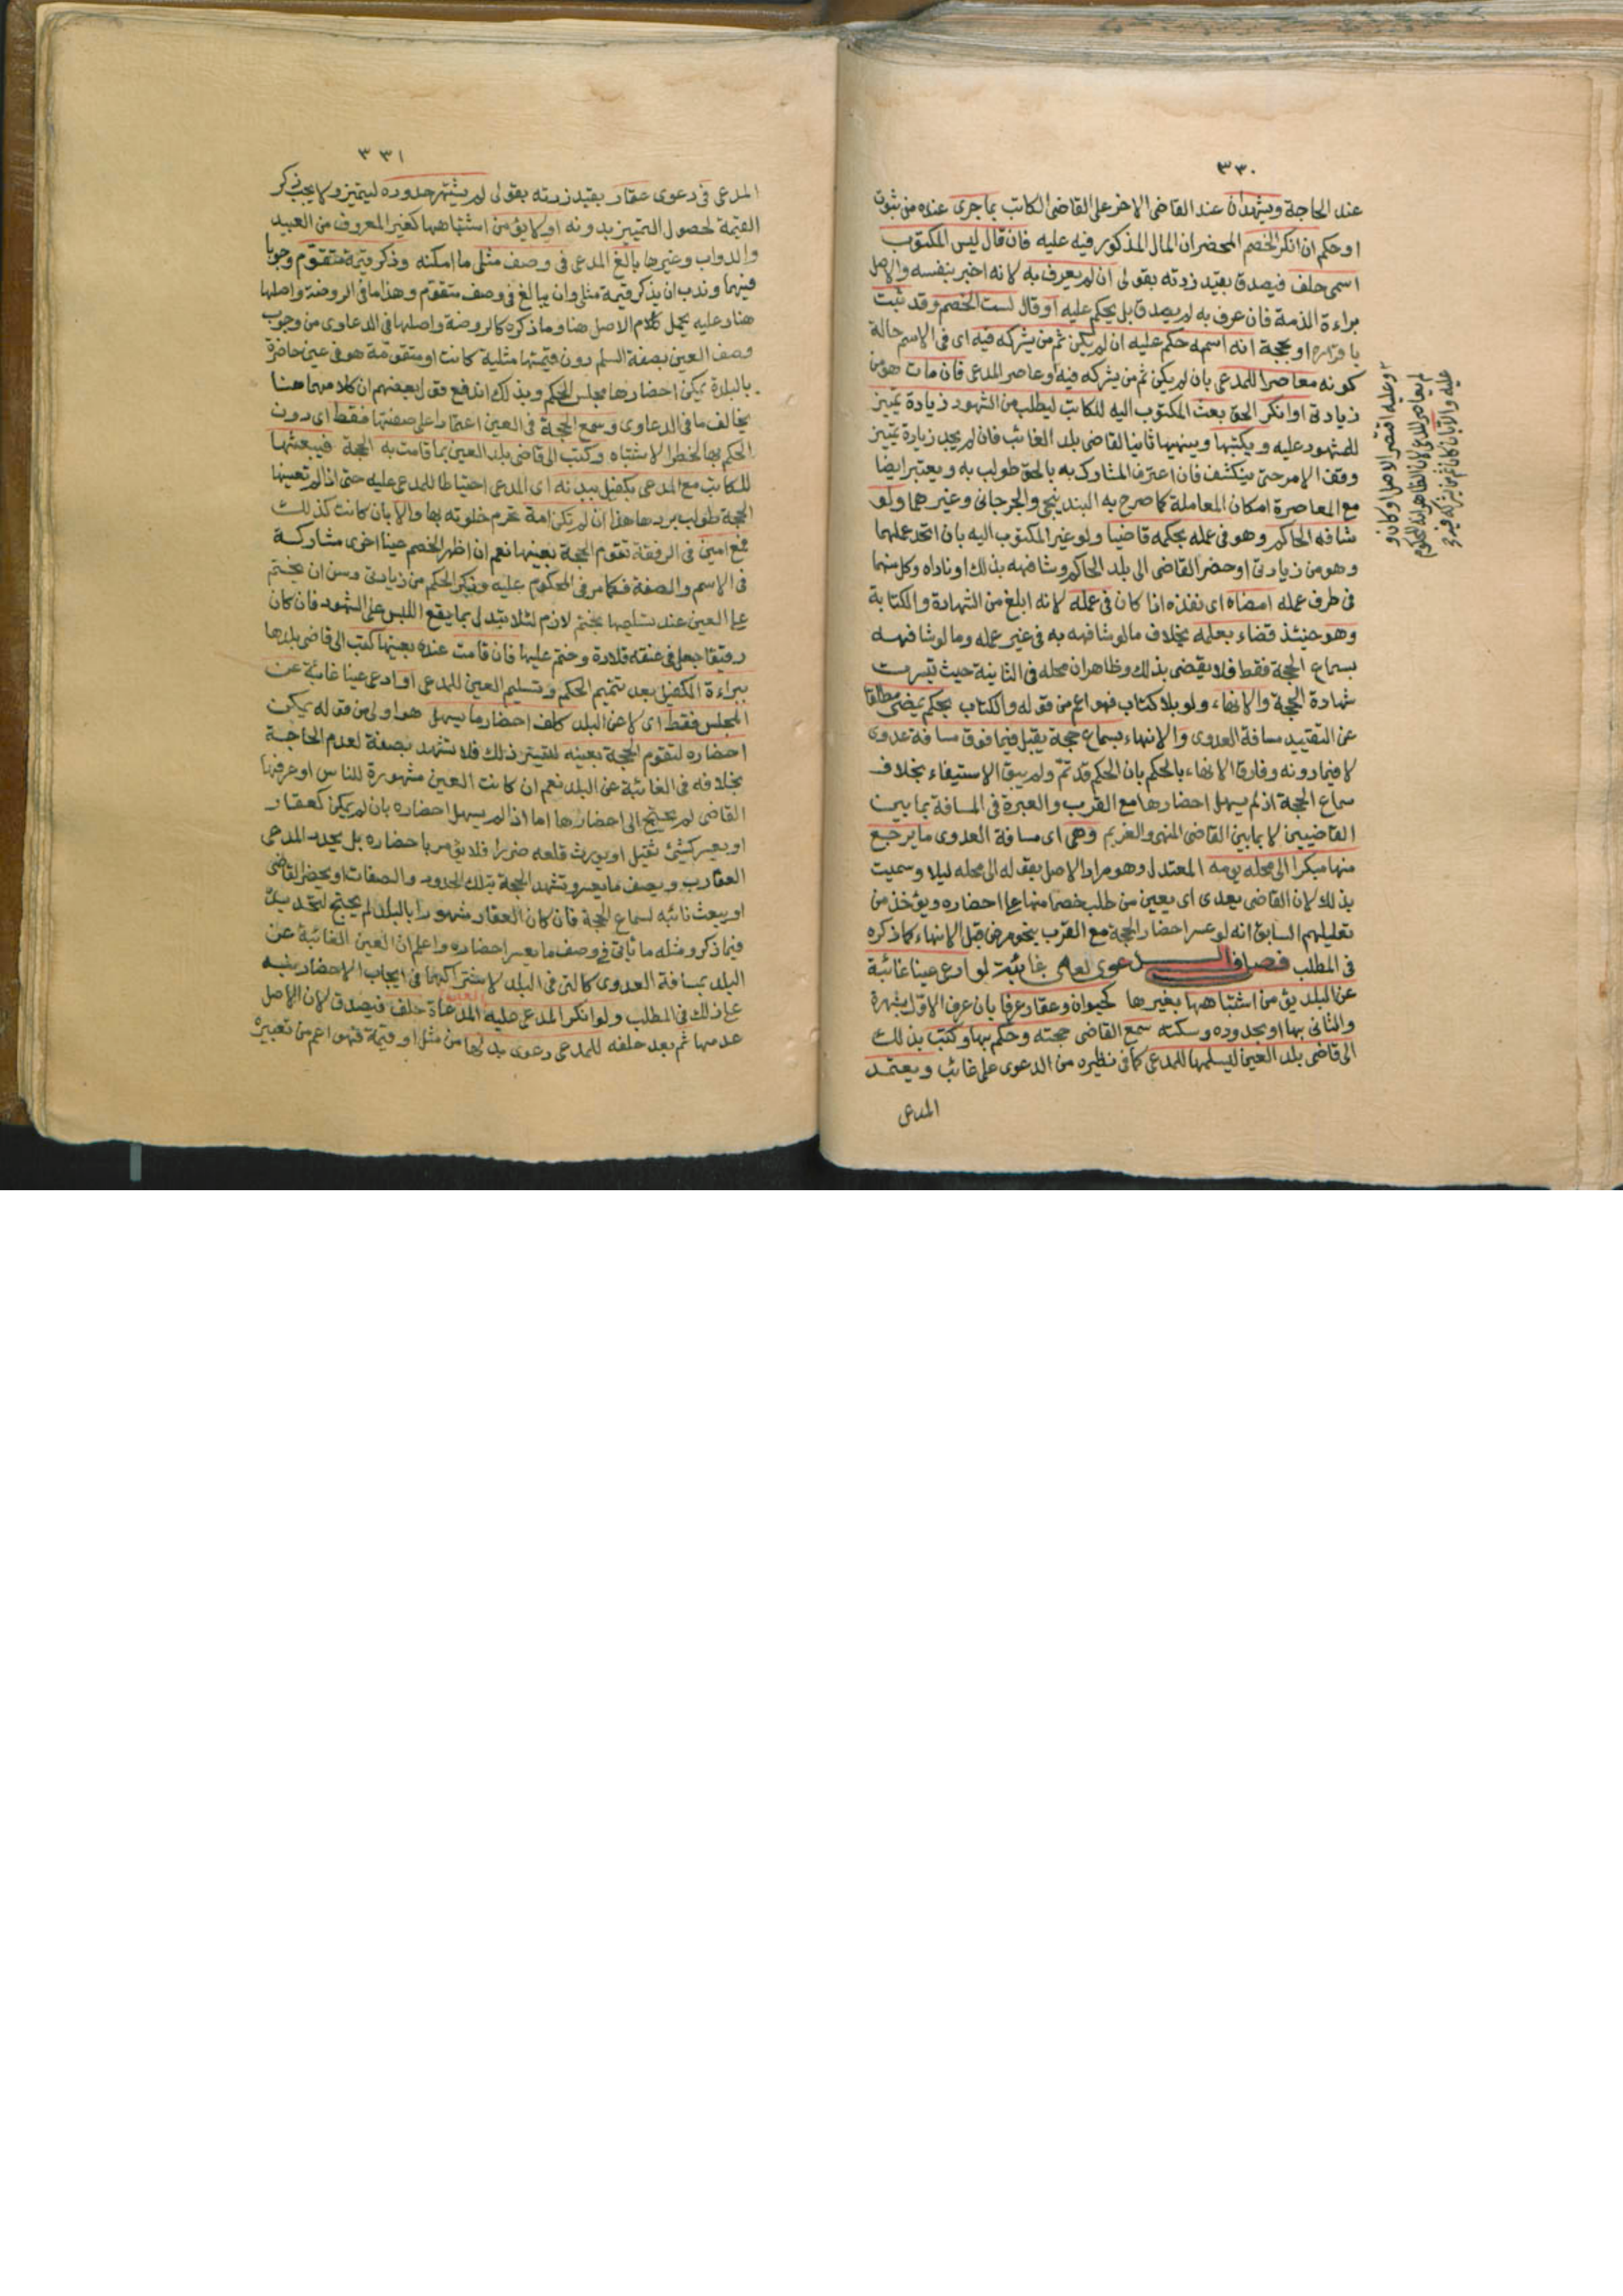 ٣٣٠
عند الحاجة ويشهدان عند القاضى الاخر على القاضى الكاتب بما جرى عنده من ثبوت
او حكم ان انكر الخصم المحضر ان المال المذكور فيه عليه فان قال ليس المكتوب
اسمى حلف فيصدق بقيد زدته بقولى ان لم يعرف به لانه اخبر بنفسه والاصل
براءة الذمة فان عرف به لم يصدق بل يحكم عليه او قال لست الخصم وقد ثبت
باقراره او بحجة انه اسمه حكم عليه ان لم يكن ثم من يشركه فيه اى فى الاسم حالة
كونه معاصرا للمدعى بان لم يكن ثم من يشركه فيه او عاصر المدعى فان مات هو من
زيادتى او انكر الحق بعث المكتوب اليه للكاتب ليطلب من الشهود زيادة تمييز
للمشهود عليه ويكتبها وينهيها ثانيا لقاضى بلد الغائب فان لم يجد زيادة تمييز
وقف الامر حتى ينكشف فان اعترف المشارك به بالحق طولب به ويعتبر ايضا
مع المعاصرة امكان المعاملة كما صرح به البندنيجى والجرجانى وغيرهما ولو
شافه الحاكم وهو فى عمله بحكمه قاضيا ولو غير المكتوب اليه بان اتحد عملهما
وهو من زيادتى او حضر القاضى الى بلد الحاكم وشافهه بذلك او ناداه وكل منهما
فى طرف عمله امضاه اى نفذه اذا كان فى عمله لانه ابلغ من الشهادة والكتابة
وهو حينئذ قضاء بعلمه بخلاف ما لو شافهه به فى غير عمله وما لو شافهه
بسماع الحجة فقط فلا يقضى بذلك وظاهر ان محله فى الثانية حيث تيسرت
شهادة الحجة والانهاء ولو بلا كتاب فهو اعم من قوله والكتاب بحكم يمضى مطلقا
عن التقييد مسافة العدوى والانهاء بسماع حجة يقبل فيما فوق مسافة عدوى
لا فيما دونه وفارق الانهاء بالحكم بان الحكم قد تم ولم يبق الا الاستيفاء بخلاف
سماع الحجة اذ لم يسهل احضارها مع القرب والعبرة فى المسافة بما بين
القاضيين لا بما بين القاضى المنهى والغريم وهى اى مسافة العدوى ما يرجع
منها مبكرا الى محله يومه المعتدل وهو مراد الاصل بقوله الى محله ليلا وسميت
بذلك لان القاضى يعدى اى يعين من طلب خصما منها على احضاره ويؤخذ من
تعليلهم السابق انه لو عسر احضار الحجة مع القرب بنحو مرض قبل الانهاء كما ذكره
فى المطلب فصل فى الدعوى بعين غائبة لو ادعى عينا غائبة
عن البلد يؤمن اشتباهها بغيرها كحيوان وعقار عرفا بان عرف الاول بشهرة
والثانى بها او بحدوده وسكته سمع القاضى حجته وحكم بها وكتب بذلك
الى قاضى بلد العين ليسلمها للمدعى كما فى نظيره من الدعوى على غائب ويعتمد
المدعى
وعليه اقتصر الاصل او كان و
لم يعاصر المدعى لان الظاهر انه المحكوم
عليه والا بان كان ثم من يشركه فيه
٣٣١
المدعى فى دعوى عقار بقيد زدته بقولى لم يشتهر حدوده ليتميز ولا يجب ذكر
القيمة لحصول التمييز بدونه او لا يؤمن اشتباهها كغير المعروف من العبيد
والدواب وغيرها بالغ المدعى فى وصف مثلى ما امكنه وذكر قيمة متقوم وجوبا
فيهما وندب ان يذكر قيمة مثلى وان يبالغ فى وصف متقوم وهذا ما فى الروضة واصلها
هنا وعليه يحمل كلام الاصل هنا وما ذكره كالروضة واصلها فى الدعاوى من وجوب
وصف العين بصفة السلم دون قيمتها مثلية كانت او متقومة هو فى عين حاضرة
بالبلد يمكن احضارها مجلس الحكم وبذلك اندفع قول بعضهم ان كلامهما هنا
يخالف ما فى الدعاوى وسمع الحجة فى العين اعتمادا على صفتها فقط اى دون
الحكم بها لخطر الاشتباه وكتب الى قاضى بلد العين بما قامت به الحجة فيبعثها
للكاتب مع المدعى بكفيل ببدنه اى المدعى احتياطا للمدعى عليه حتى اذا لم تعينها
الحجة طولب بردها هذا ان لم تكن امة تحرم خلوته بها والا بان كانت كذلك
فمع امين فى الرفقة تقوم الحجة بعينها نعم ان اظهر الخصم عينا اخرى مشاركة
فى الاسم والصفة فكما مر فى المحكوم عليه وذكر الحكم من زيادتى وسن ان يختم
على العين عند تسليمها بختم لازم لئلا تبدل بما يقع اللبس على الشهود فان كان
رقيقا جعل فى عنقه قلادة وختم عليها فان قامت عنده بعينها كتب الى قاضى بلدها
ببراءة الكفيل بعد تتميم الحكم وتسليم العين للمدعى او ادعى عينا غائبة عن
المجلس فقط اى لا عن البلد كلف احضار ما يسهل هو اولى من قوله يمكن
احضاره لتقوم الحجة بعينه لتيسر ذلك فلا تشهد بصفة لعدم الحاجة
بخلافه فى الغائبة عن البلد نعم ان كانت العين مشهورة للناس او عرفها
القاضى لم يحتج الى احضارها اما اذا لم يسهل احضاره بان لم يمكن كعقار
او يعسر كشئ ثقيل او يورث قلعه ضررا فلا يؤمر باحضاره بل يحدد المدعى
العقار ويصف ما يعسر وتشهد الحجة بتلك الحدود والصفات او يحضر القاضى
او يبعث نائبه لسماع الحجة فان كان العقار مشهورا بالبلد لم يحتج لتحديده
فيما ذكر ومثله ما ياتى فى وصف ما يعسر احضاره واعلم ان العين الغائبة عن
البلد بمسافة العدوى كالتى فى البلد لاشتراكهما فى ايجاب الاحضار نبه
على ذلك فى المطلب ولو انكر المدعى عليه العين المدعاة حلف فيصدق لان الاصل
عدمها ثم بعد حلفه للمدعى دعوى بدلها من مثل او قيمة فهو اعم من تعبيره